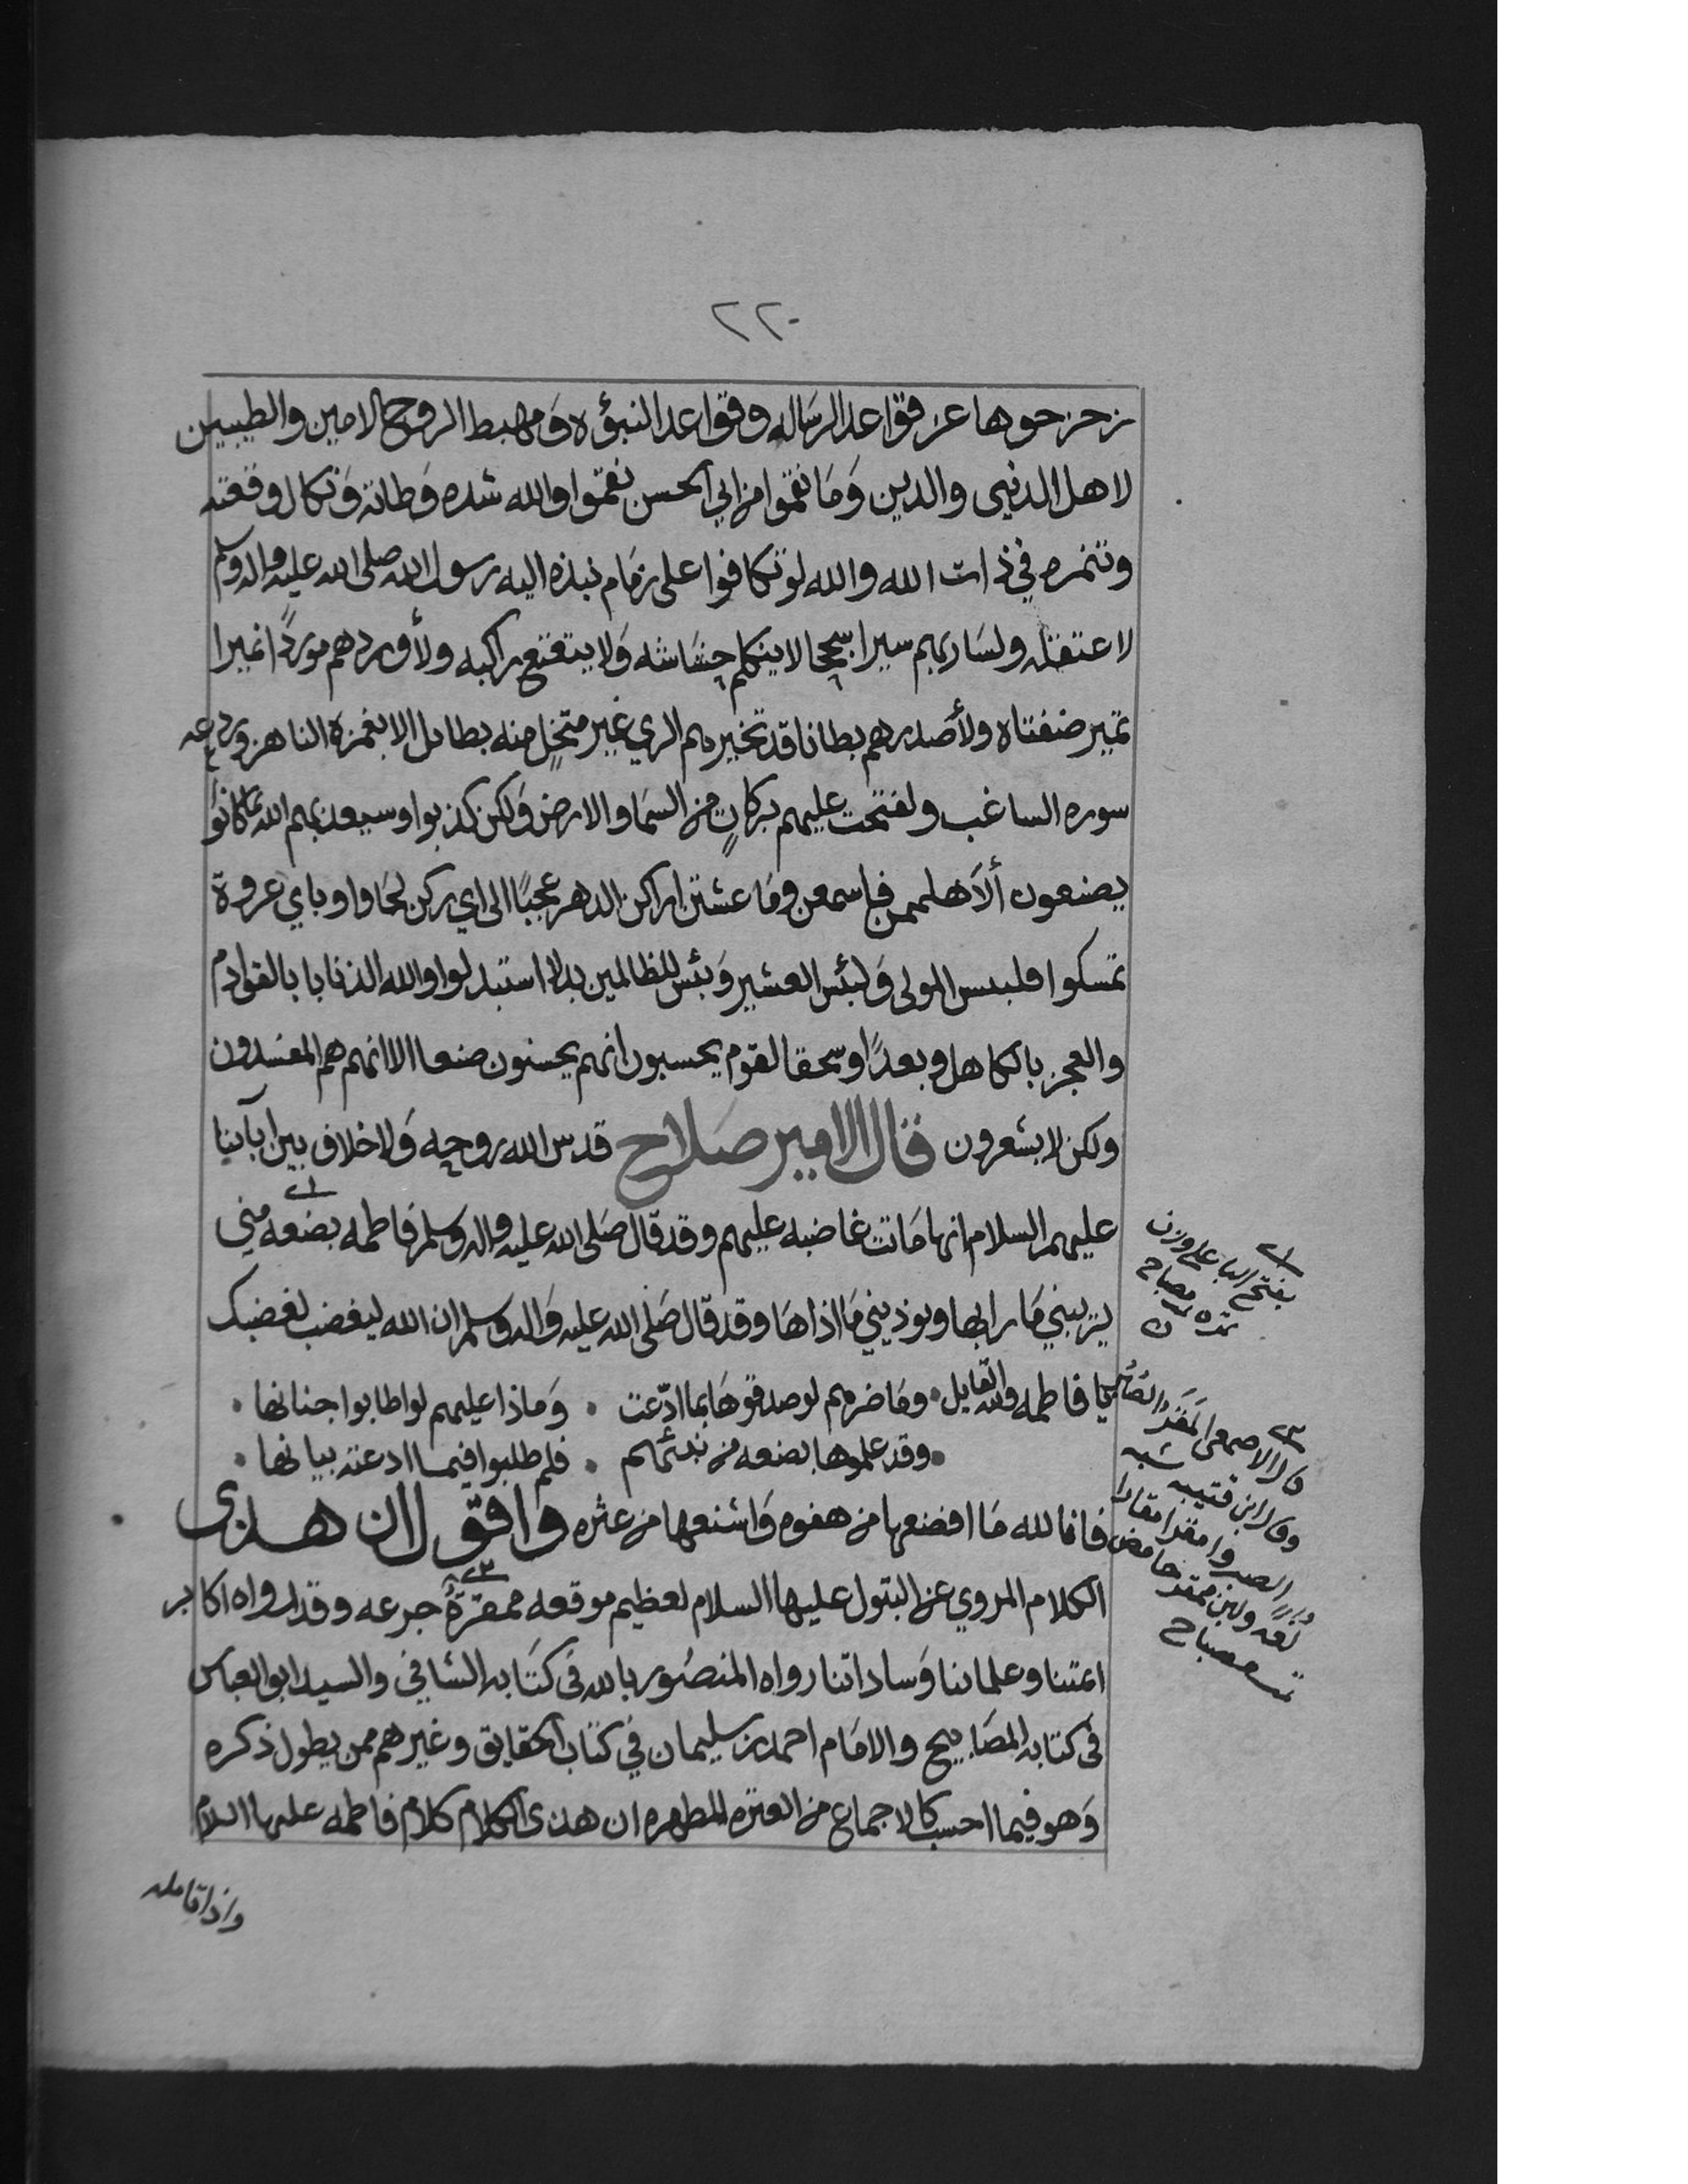 ٢٢٠
زحزحوها عن قواعد الرساله وقواعد النبوه وَمهبط الروح الامين والطيبين
لاهل الدنيى والدين وَمَا نقموا من ابي الحسن نقموا والله شده وَطاته وَنكال وقعته
وتنمره في ذات الله والله لو تكافوا على زمَام نبذه اليه رسول الله صلى الله عليه واله وسلم
لاعتقله ولسَار بهم سيرا سجحا لا ينكلم حشاشه وَلا يتعتع راكبه ولأوردهم مَوردًا نميرا
تمير ضفتاه ولأصدرهم بطانا قد تخير بهم الري غير متحلٍ منه بطايل الا بغمزة الناهز وردعه
سوره الساغب ولفتحت عليهم بركاتٍ من السمَا والارض وَلكن كذبوا وسيعذبهم الله بما كانوا
يصنعون ألاَ هلممن فاسمعن ومَا عشتن اراكن الدهر عجبًا الى اي ركن لجَاوا وباي عروة
تمسكوا فلبيس المولى وَلبئس العشير وَبئس للظالمين بدلا استبدلوا والله الذنابا بالقوادم
والعجز بالكاهل وبعدًا وسحقا لقوم يحسبون انهم يحسنون صنعا الا انهم هم المفسدون
ولكن لا يشعرون قال الامير صَلاح قدس الله روحه وَلا خلاف بين آباينا
عليهم السلام انها مَاتت غاضبه عليهم وقد قال صَلى الله عليه واله وسلم فاطمه بضعه مني
يريبني مَا رابها ويوذيني مَا اذاهَا وقد قال صَلى الله عليه وَاله وسلم ان الله ليغضب لغضبك
يا فاطمه ولله القايل • ومَا ضرهم لو صدقوهَا بما ادّعت • وَماذا عليهم لو اطابوا جنانها •
• وقد علموها بضعه من نبيهم • فلم طلبوا فيما ادعته بيانها •
فانا لله مَا افضعها من هفوه وَاشنعها من عثره واقول ان هذى
الكلام المروي عن البتول عليها السلام لعظيم موقعه ممقرَةُ جرعه وقد رواه اكابر
ائمتنا وعلمائنا وَساداتنا رواه المنصُور بالله فى كتَابه الشافي والسيد ابو العباس
فى كتابه المصَابيح والامَام احمد بن سليمان في كتاب الحقايق وغيرهم ممن يطول ذكره
وَهو فيما احسب كالاجماع من العتره المطهره ان هذى الكلام كلام فاطمه عليها السلام
بفتح البا على وزن
تمره مصباح
قال الاصمعى المَقْر الصَّبِر
وقال ابن قتيبه شبه
الصبر
لغه ولبن ممقر حامض
مصباح
واذا تامله